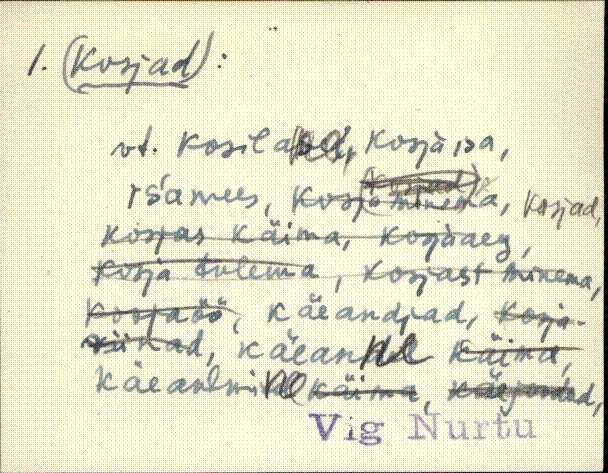 1. (Kosjad):
vt. kosilased, kosjaisa,
isamees, kosja minema, kosjad,
kosjas käima, kosjaaeg,
kosja tulema, kosjast minema,
kosjaöö, käeandjad, kosja-
viinad, käeand käima,
käeandmine käima,
Vig Nurtu